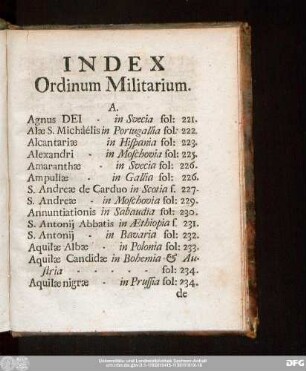 INDEX
Ordinum Militarium.
A.
Agnus DEI - in Svecia fol: 221.
Alæ S. Michaélis in Portugallia fol: 222.
Alcantariæ - in Hispania fol: 223.
Alexandri - in Moschovia fol: 225.
Amaranthæ - in Svecia fol: 226.
Ampuliæ - in Gallia fol: 226.
S. Andreæ de Carduo in Scotia f. 227.
S. Andreæ - in Moschovia fol: 229.
Annuntiationis in Sabaudia fol: 230.
S. Antonij Abbatis in Æthiopia f. 231.
S. Antonij - in Bavaria fol: 232.
Aquilæ Albæ - in Polonia fol: 233.
Aquilæ Candidæ in Bohemia & Au-
stria - - - - - fol: 234.
Aquilæ nigræ - in Prussia fol: 234.
de
DFG